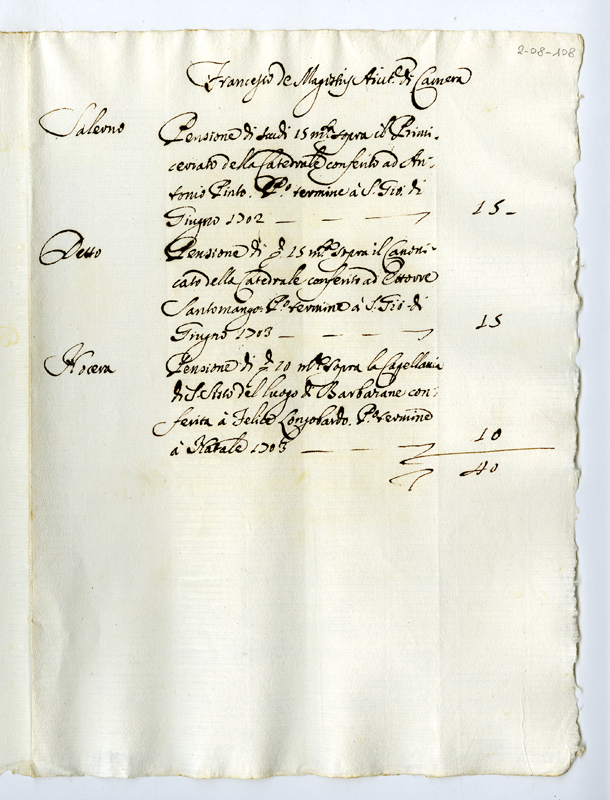 2-08-108
Francesco de Magistris Aiut.e di Camera
Salerno Pensione di scudi 15 m.ta sopra il Primi-
ceriato della Catedrale conferito ad An-
tonio Pinto. P.o termine à S. Gio. di
Giugno 1702 — — — 15 -
Detto Pensione di 15 m.ta sopra il Canoni-
cato della Catedrale conferito ad Ettorre
Santomango. P.o termine à S. Gio. di
Giugno 1703 — — — 15
Nocera Pensione di 10 m.ta sopra la Capellania
di S. Sisto del luogo di Barbazane con-
ferita à Felice Longobardo. P.o termine
à Natale 1703 — — — 10
40